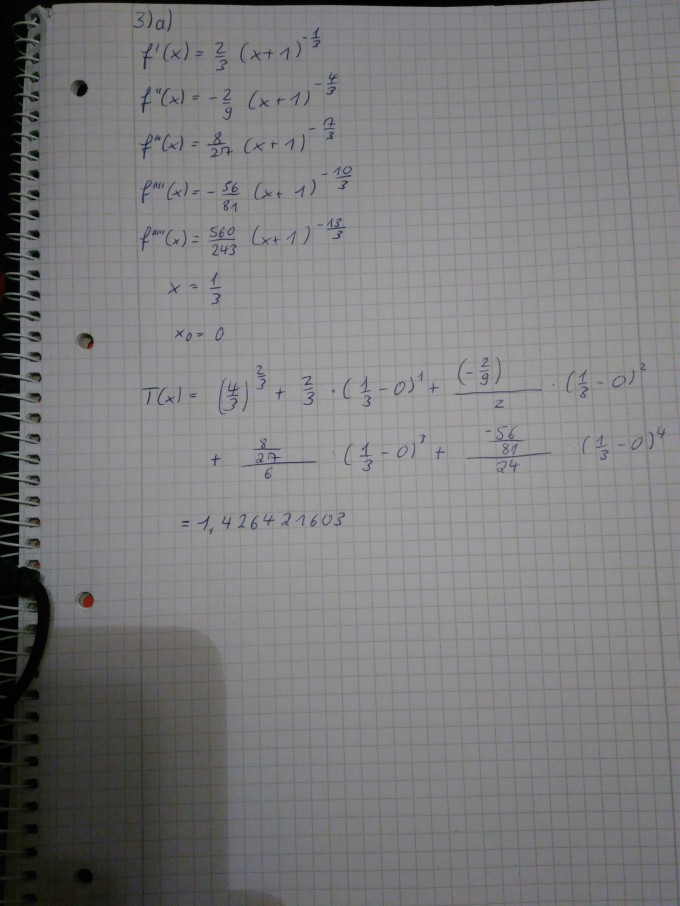 3)a)
f'(x) = 2/3 (x+1)^(-1/3)
f''(x) = -2/9 (x+1)^(-4/3)
f'''(x) = 8/27 (x+1)^(-7/3)
f''''(x) = -56/81 (x+1)^(-10/3)
f'''''(x) = 560/243 (x+1)^(-13/3)
x = 1/3
x₀ = 0
T(x) = (4/3)^(2/3) + 2/3 · (1/3 - 0)^1 + (-2/9)/2 · (1/3 - 0)^2
+ (8/27)/6 · (1/3 - 0)^3 + (-56/81)/24 · (1/3 - 0)^4
= 1,426421603